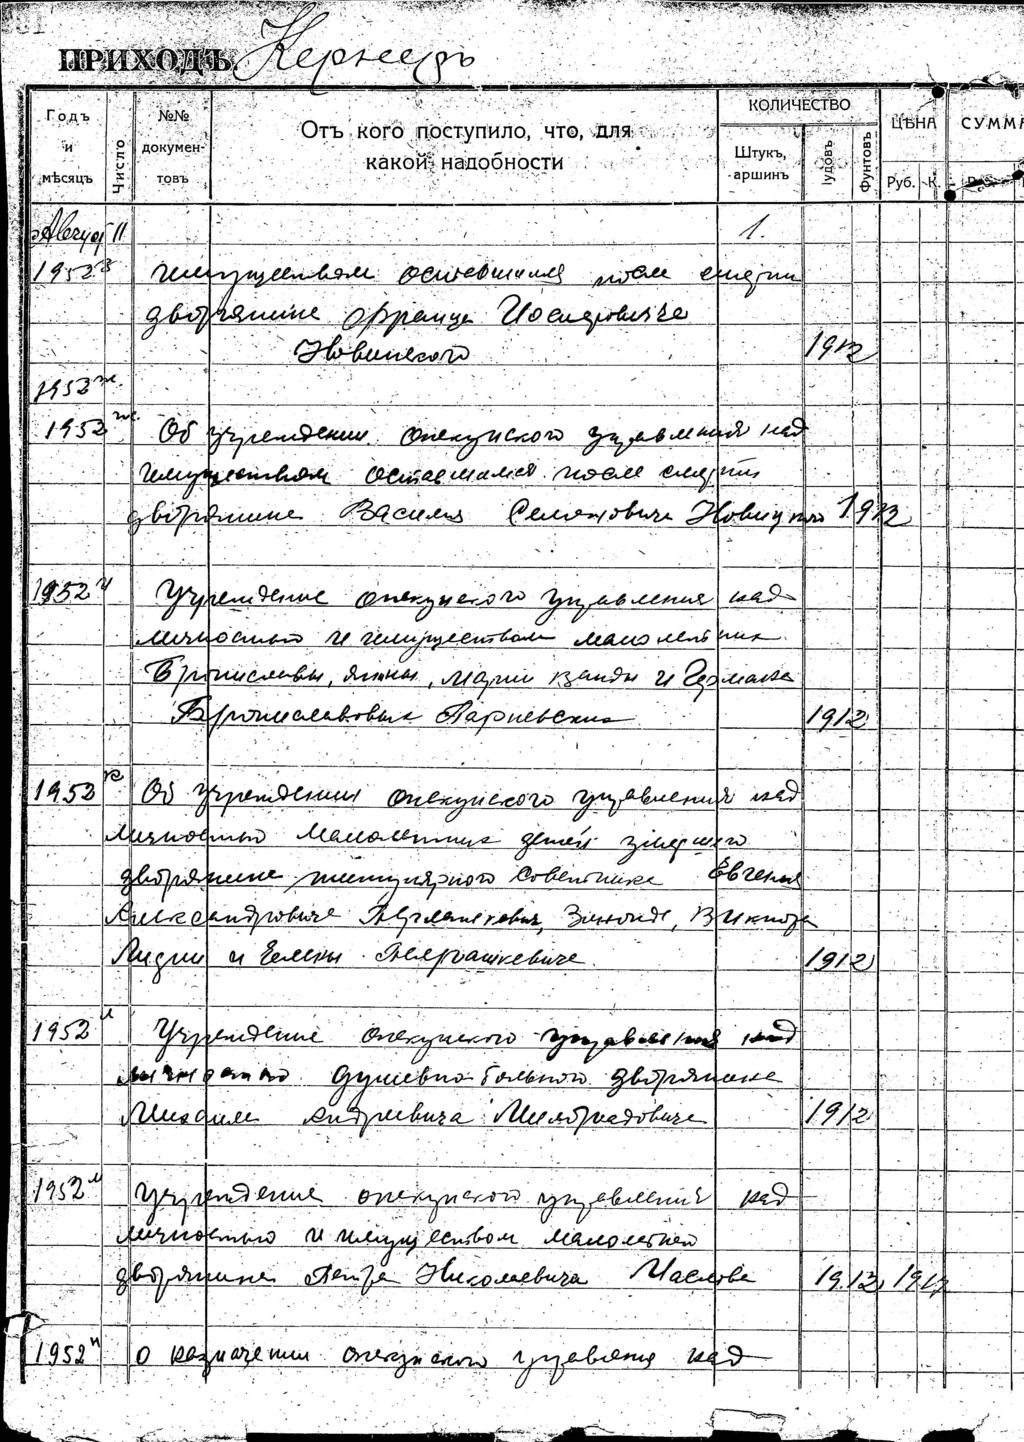 ПРИХОДЪ.
КОЛИЧЕСТВО
Годъ и мѣсяцъ
Число
№№ докумен-товъ
Отъ кого поступило, что, для какой надобности
Штукъ, аршинъ
Пудовъ
Фунтовъ
ЦѢНА
СУММА
Руб. К.
11 1.
1952 з имуществом оставшимся после смерти
дворянина Франца Иосифовича
Новинского 1912
1952 ж.
1952 ж. Об учреждении опекунского управления над
имуществом оставшимся после смерти
дворянина Василия Семеновича Новицкого 1912
1952 и Учреждение опекунского управления над
личностью и имуществом малолетних
Брониславы, Янины, Марии Ванды и Германа
Брониславовых Парневских 1912
1952 к Об учреждении опекунского управления над
личностью малолетних детей умершего
дворянина титулярного советника Евгения
Александровича Зинаиды, Виктора
Лидии и Елены 1912
1952 л Учреждение опекунского управления над
личностью душевно больного дворянина
Михаила Андреевича Милорадовича 1912
1952 м Учреждение опекунского управления над
личностью и имуществом малолетней
дворянина Петра Николаевича Маслова 1913 1912
1952 н О назначении опекунского управления над